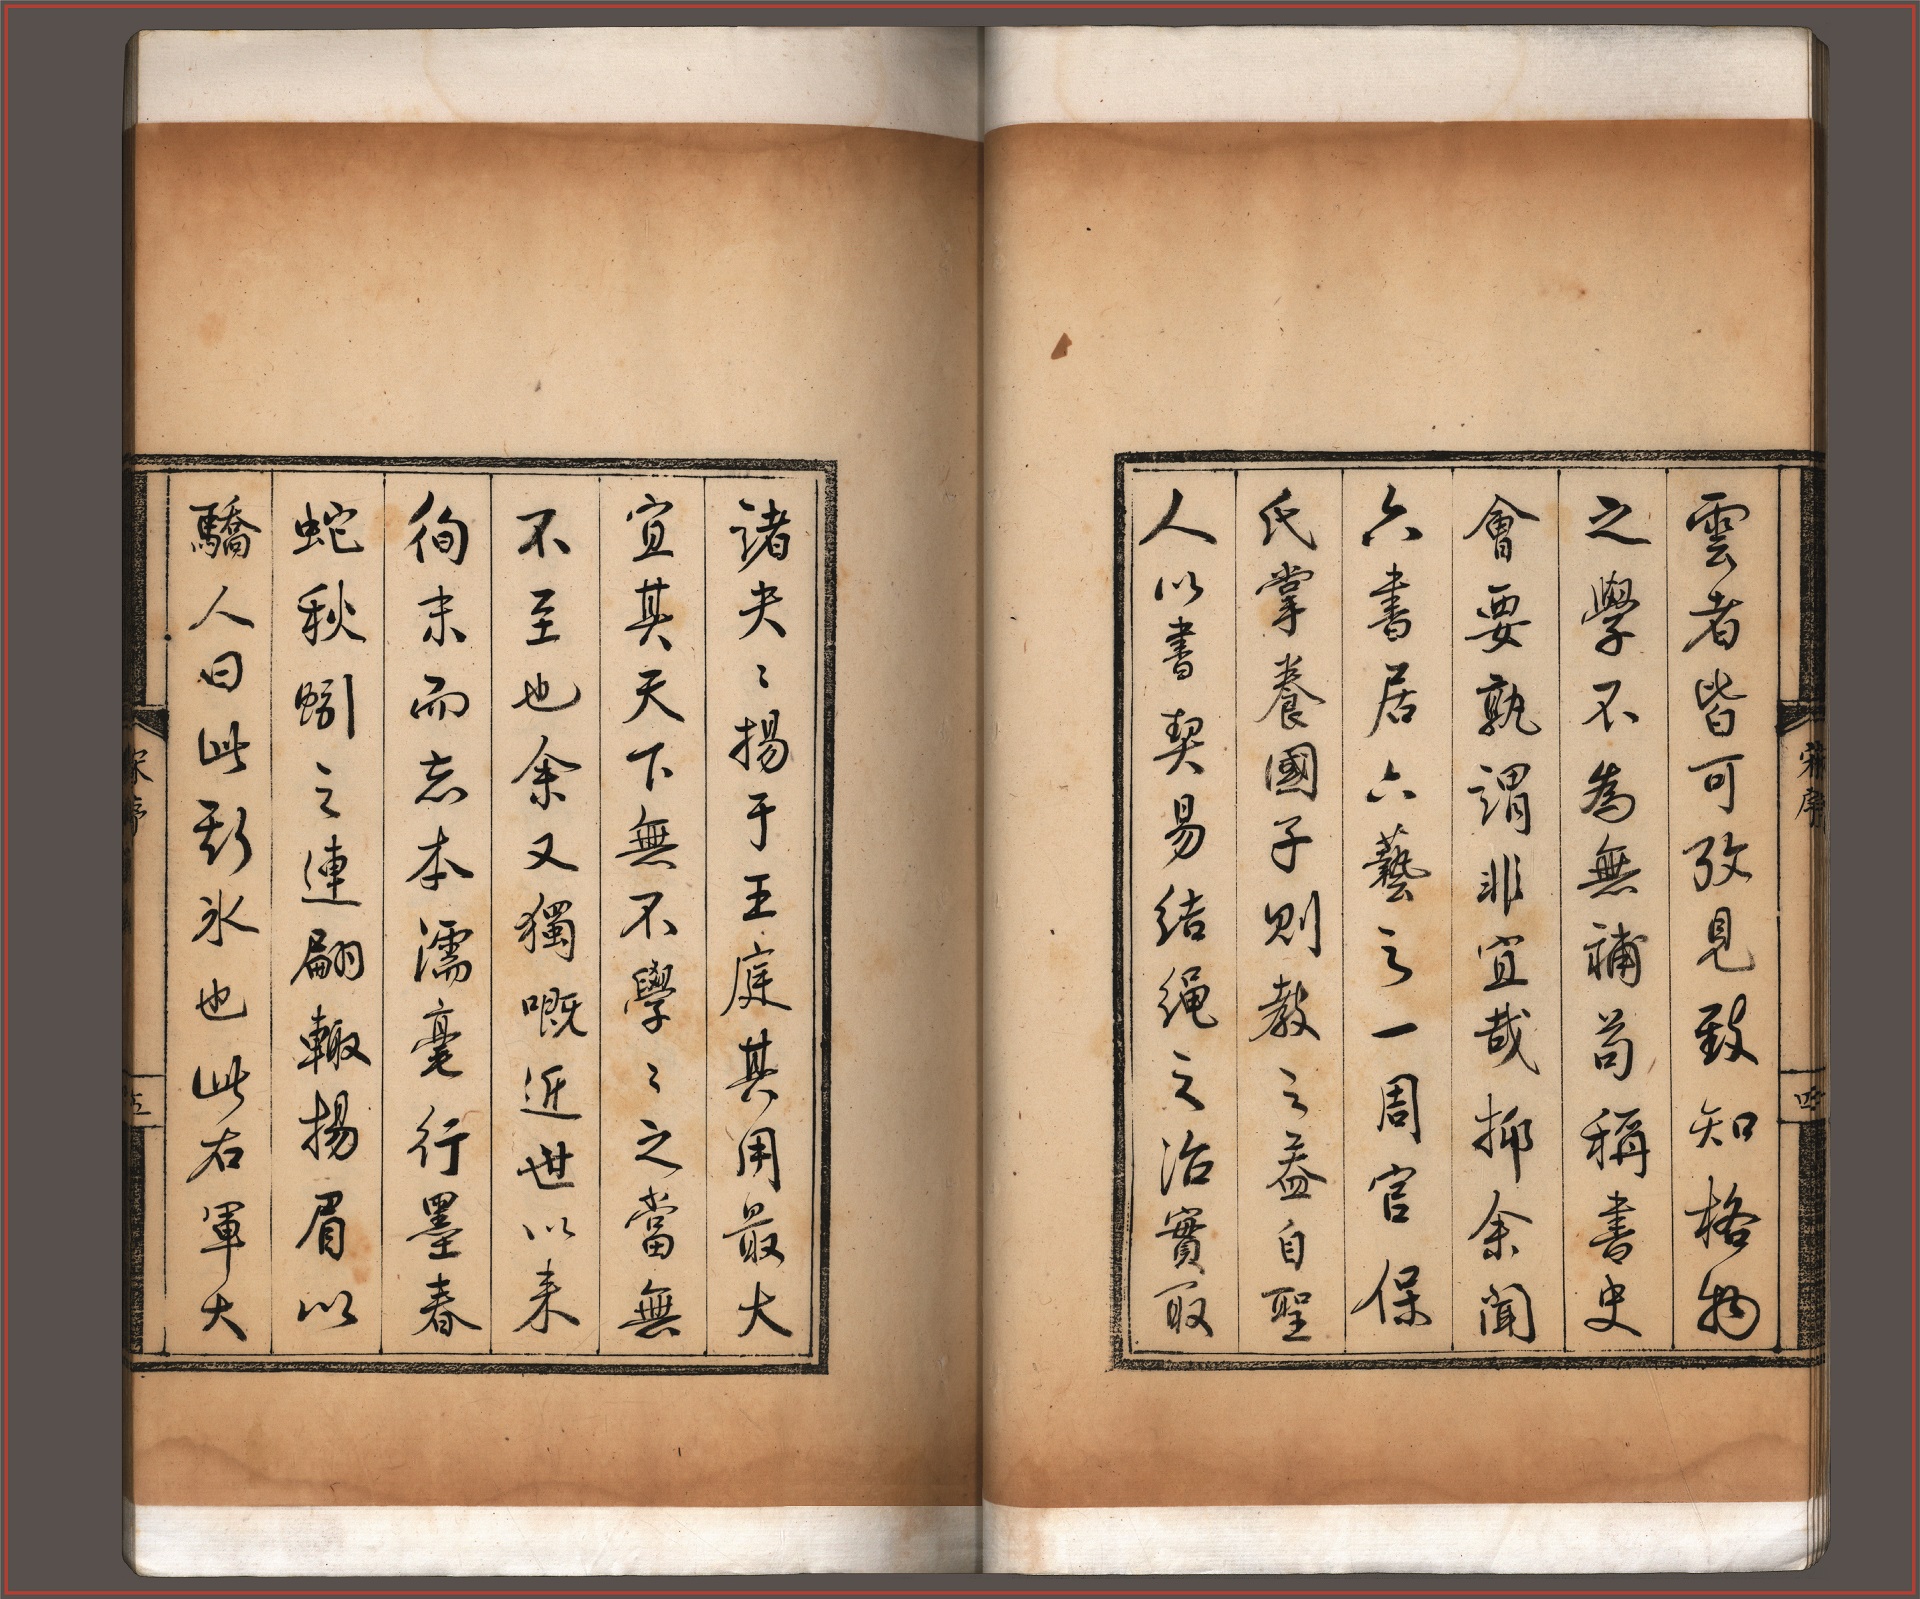 雲者皆可攷見致知格物
之學不為無補苟稱書史
會要孰謂非宜哉抑余聞
六書居六藝之一周官保
氏掌養國子則教之蓋自聖
人以書契易結繩之治實取
諸夬〻揚于王庭其用最大
宜其天下無不學〻之當無
不至也余又獨嘅近世以来
徇末而忘本濡毫行墨春
蛇秋蚓之連翩輙揚眉以
驕人曰此斯冰也此右軍大
宋序
四
宋序
五